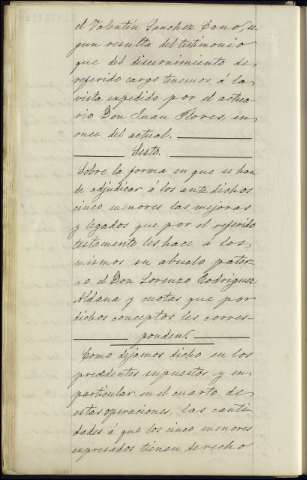 el Valentín Sanchez Como, se
gun resulta del testimonio
que del discernimiento de
referido cargo tenemos á la
vista espedido por el actua
rio Don Juan Flores, en
once del actual.
Sesto.
Sobre la forma en que se han
de adjudicar á los ante dichos
cinco menores las mejoras
y legados que por el referido
testamento les hace á los
mismos su abuelo pater
no el Don Lorenzo Rodriguez
Aldana y cuotas que por
dichos conceptos les corres-
ponden.
Como dejamos dicho en los
precedentes supuestos y en
particular en el cuarto de
estas operaciones, las canti
dades á que los cinco menores
expresados tienen derecho